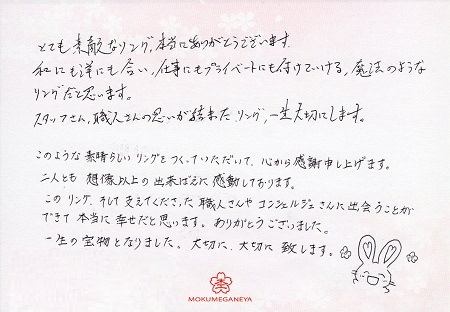 とても素敵なリング、本当にありがとうございます。
和にも洋にも合い、仕事にもプライベートにも付けていける、魔法のような
リングだと思います。
スタッフさん、職人さんの思いが詰まったリング、一生大切にします。
このような素晴らしいリングをつくっていただいて、心から感謝申し上げます。
二人とも想像以上の出来ばえに感動しております。
このリング、そして支えてくださった職人さんやコンシェルジュさんに出会うことが
できて本当に幸せだと思います。ありがとうございました。
一生の宝物となりました。大切に、大切に致します。
MOKUMEGANEYA